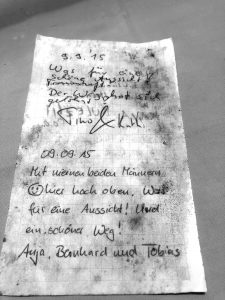 9.9.'15
Was für eine
schöne Aussicht &
Der hat sich
&
09.09.15
Mit meinen beiden Männern
hier hoch oben. Was
für eine Aussicht! Und
ein schöner Weg!
Anja, Bernhard und Tobias